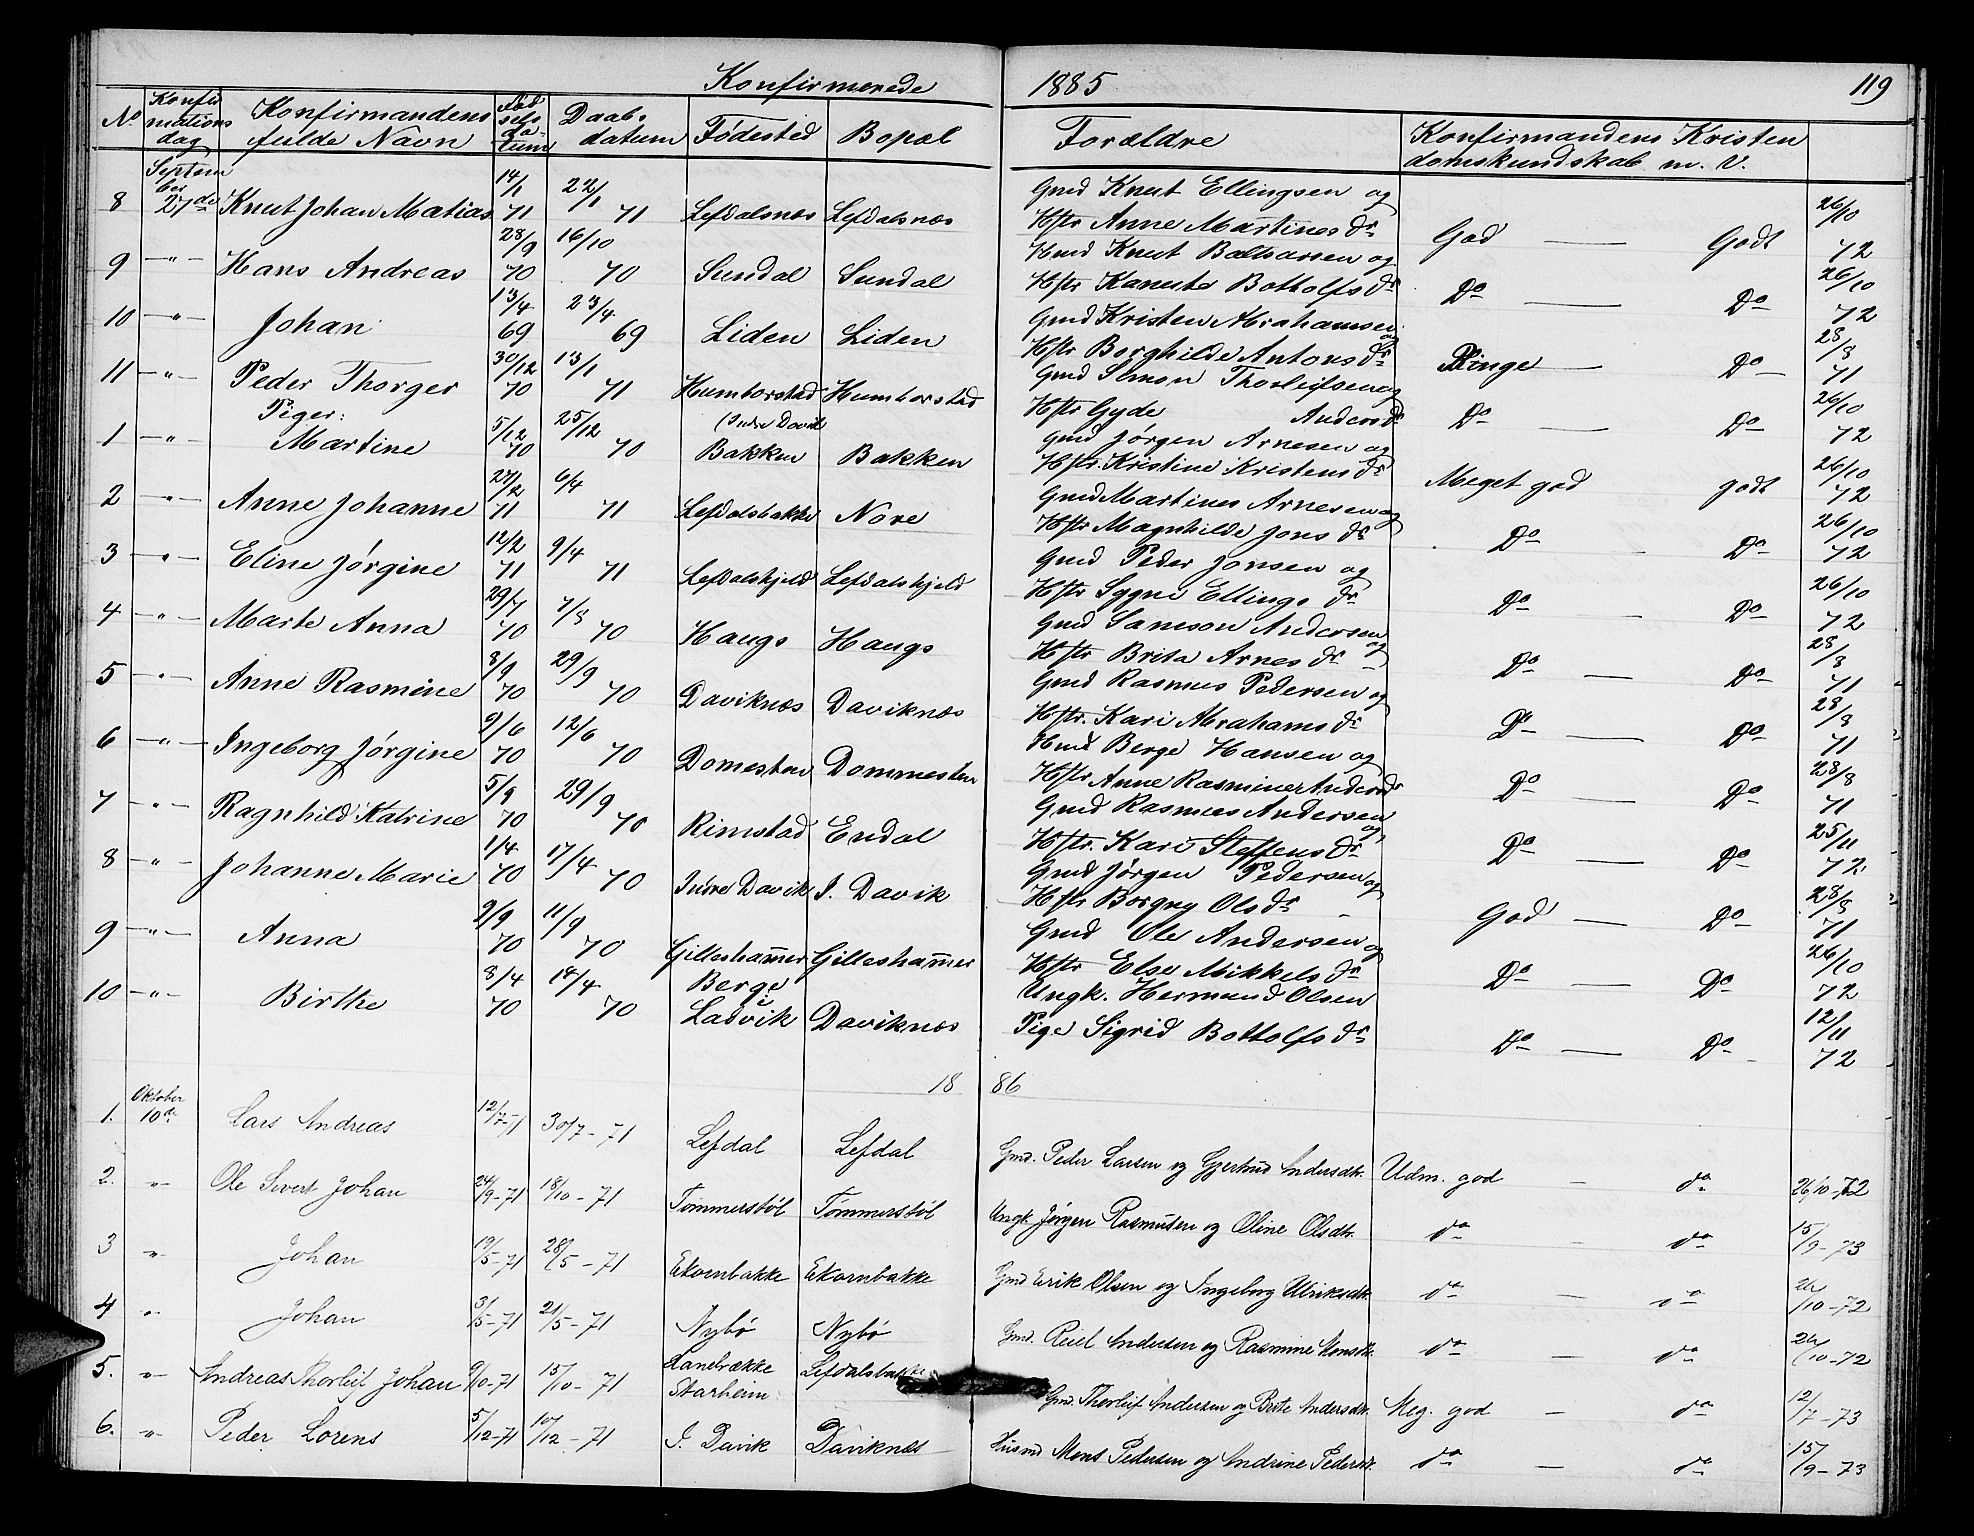 Konfirmerede 1885 119
No Konfirmations dag Konfirmandens fulde Navn Fødselsdatum Daabsdatum Fødested Bopæl Forældre Konfirmandens Kristendomskundskab m. V.
8 September 27de Knut Johan Matias 14/1 71 22/1 71 Lefdalsnæs Lefdalsnæs Gmd Knut Ellingsen og Hstr Anne Martines Dr God — Godt 26/10 72
9 —"— Hans Andreas 28/9 70 16/10 70 Sundal Sundal Hmd Knut Baltsarsen og Hstr Kanute Bottolfs Dr Do — Do 26/10 72
10 —"— Johan 13/4 69 23/4 69 Liden Liden Gmd Kristen Abrahamsen og Hstr Borghilde Antons Dr Ringe — Do — 28/8 71
11 —"— Peder Thorger 30/12 70 13/1 71 Humborstad Humborstad Gmd Simon Thorleifsen og Hstr Gyde Anders Dr Do — Do 26/10 72
Piger:
1 —"— Martine 5/12 70 25/12 70 (Indre Davik Bakken Bakken Gmd Jørgen Arnesen og Hstr. Kristine Kristens Dr Meget god godt 26/10 72
2 —"— Anne Johanne 27/2 71 6/4 71 Lefdalsbakke Nore Gmd Martines Arnesen og Hstr Magnhilde Jons Dr Do - Do 26/10 72
3 —"— Eline Jørgine 12/2 71 9/4 71 Lefdalskjeld Lefdalskjeld Gmd Peder Jonsen og Hstr Sygni Ellings Dr Do - Do 26/10 72
4 —"— Marte Anna 29/7 70 7/8 70 Haugs Haugs Gmd Samson Andersen og Hstr Brita Arnes Dr Do — Do 28/8 71
5 —"— Anne Rasmine 8/9 70 29/9 70 Daviknæs Daviknæs Gmd Rasmus Pedersen og Hstr. Kari Abrahams Dr Do — Do 28/8 71
6 —"— Ingeborg Jørgine 2/6 70 12/6 70 Domesten Dommesten Hmd Berge Hansen og Hstr Anne Rasmine Anders Dr Do — Do 28/8 71
7 —"— Ragnhild Katrine 5/9 70 29/9 70 Rimstad Endal Gmd Rasmus Andersen og Hstr. Kari Steffens Dr Do — Do 25/11 72
8 —"— Johanne Marie 1/4 70 17/4 70 Indre Davik I. Davik Gmd Jørgen Pedersen og Hstr Borgny Ols Dr God — Do 28/8 71
9 —"— Anna 2/9 70 11/9 70 Gilleshammer Gilleshammer Gmd Ole Andersen og Hstr Else Mikkels Dr Do — Do 26/10 72
10 —"— Birthe 8/4 70 18/4 70 Berge i Ladvik Daviknæs Ungk. Hermund Olsen Pige Sigrid Bottolfs Dr Do — Do 12/11 72
1886
1. Oktober 10de Lars Andreas 12/7-71 30/7-71 Lefdal Lefdal Gmd. Peder Larsen og Gjertrud Andersdtr. Udm. god — do 26/10-72
2. " Ole Sivert Johan 24/9-71 18/10-71 Tømmerstøl Tømmerstøl Ungk. Jørgen Rasmusen og Oline Olsdtr. do — do 15/9-73
3 " Johan 19/5-71 28/5-71 Ekornbakke Ekornbakke Gmd Erik Olsen og Ingeborg Ulriksdtr. do — do 26/10-72
4 " Johan 3/5-71 21/5-71 Nybø Nybø Gmd. Reiel Andersen og Rasmine Monsdtr. do — do 26/10-72
5. " Andreas Thorleif Johan 9/10-71 15/10-71 Lanebrække Starheim Lefdalsbakke Gmd. Thorleif Andersen og Brite Andersdtr. Meg. god — do 12/7-73
6. " Peder Lorens 5/12-71 10/12-71 I. Davik Daviknæs Husmd Mons Pedersen og Andrine Pedersdtr. do — do 15/9-73